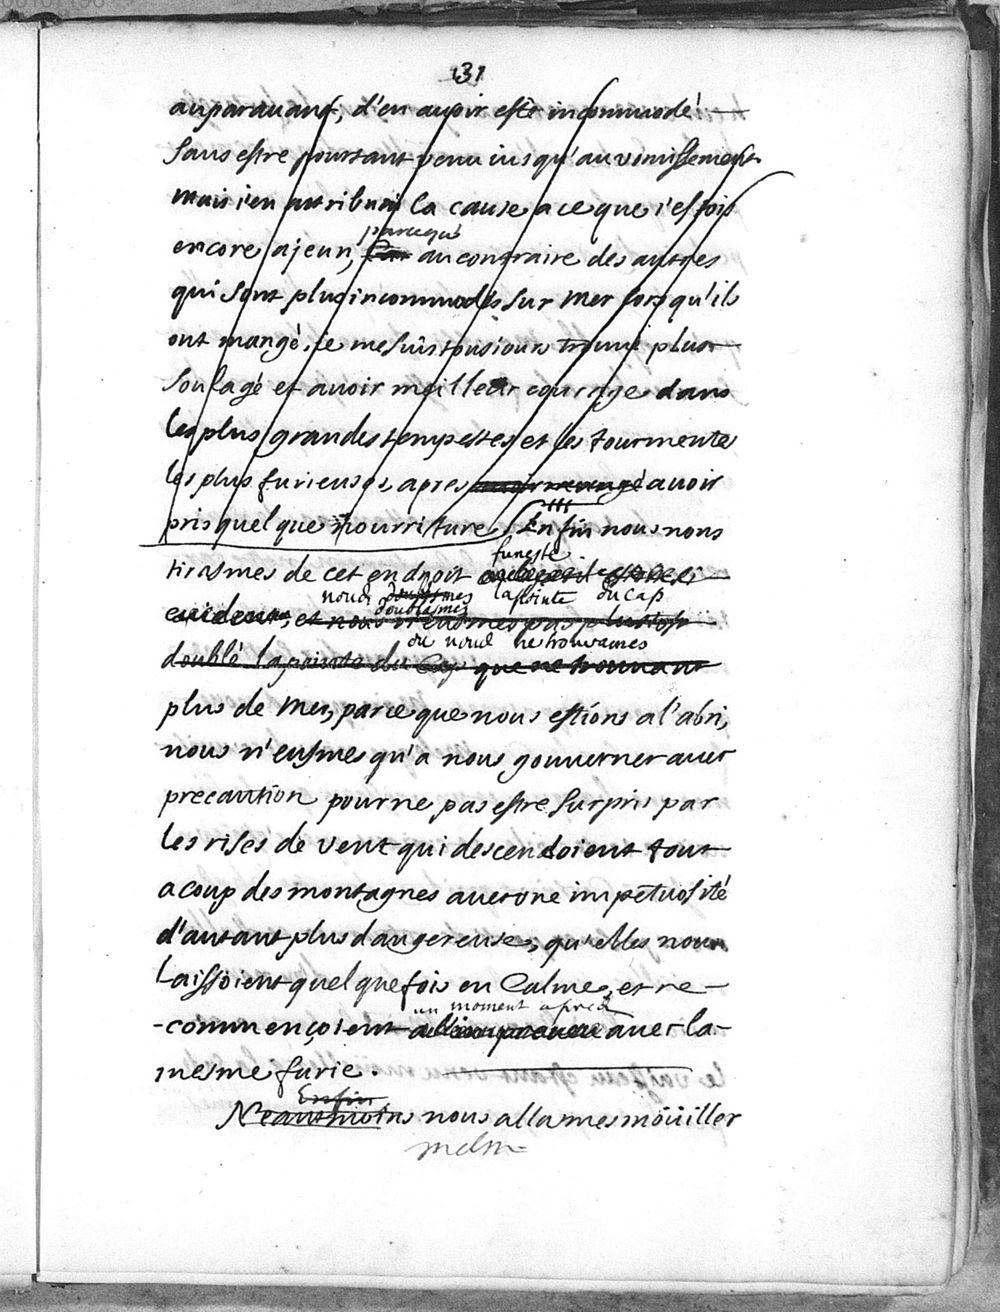 31
auparauant, d'en auoir esté incommodé
sans estre pourtant venu iusqu'au vomissement
mais i'en attribuai la cause a ce que i'estois
parcequ'
encore a jeun, au contraire des autres
qui sont plus incommodés sur mer lors qu'ils
ont mangé, ie me suis tousiours trouué plus
soulagé et auoir meilleur courage dans
les plus grandes tempestes et les tourmentes
les plus furieuses, apres auoir mangé auoir
pris quelque nourriture. Enfin nous nous
funeste
tirasmes de cet endroit
nous doublasmes la pointe du Cap
euident, et nous n'eusmes pas plustost
ou nous ne trouuames
doublé la pointe du Cap que ne trouuant
plus de mer, parce que nous estions a l'abri,
nous n'eusmes qu'a nous gouuerner auec
precaution pour ne pas estre surpris par
les rises de vent qui descendoient tout
a coup des montagnes auec vne impetuosité
d'autant plus dangereuse, qu'elles nous
laissoient quelque fois en calme, et re-
un moment apres
-commençoient a l'impreueu auec la-
mesme furie.
Enfin
Neantmoins nous allames moüiller